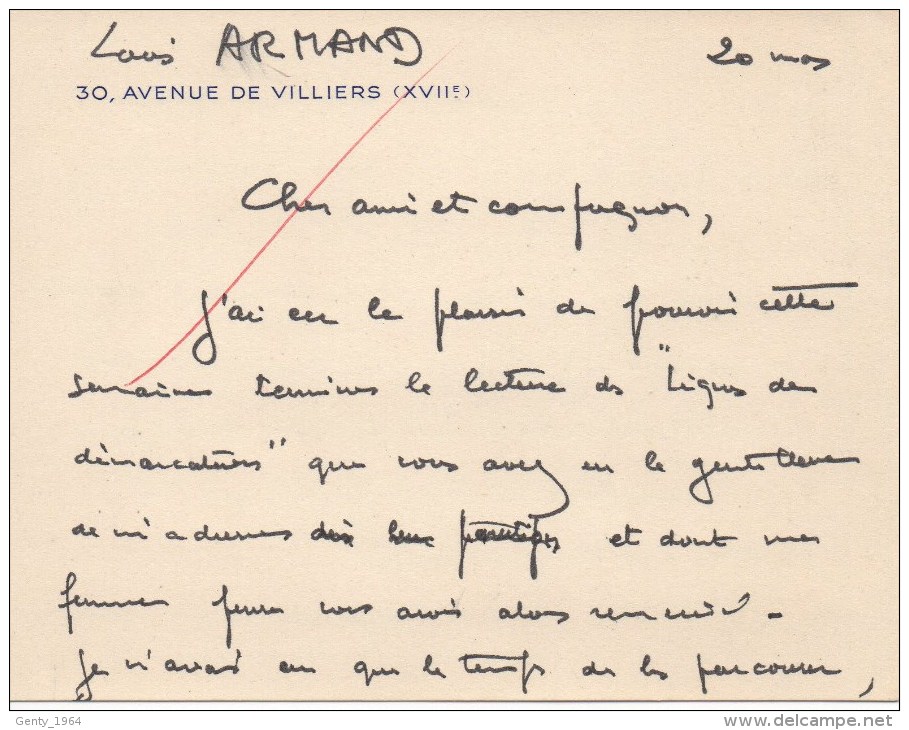 Louis ARMAND
20 mars
30, AVENUE DE VILLIERS (XVIIE)
Cher ami et compagnon,
J'ai eu le plaisir de pouvoir cette
semaine terminer la lecture de "Lignes de
démarcation" que vous avez eu la gentillesse
de m'adresser dès leur parution et dont ma
femme vous avait alors remercié.
Je n'avais eu que le temps de les parcourir,
Genty_1964
www.delcampe.net